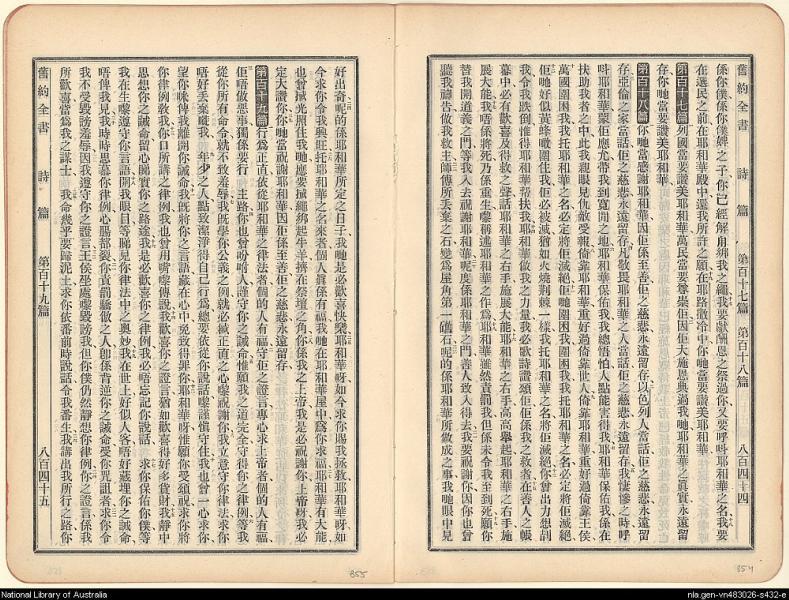 舊約全書 詩篇 第百十七篇 第百十八篇 八百四十四
係你僕係你僕婢之子你已經解甪綁我之繩我要獻酬恩之祭過你又要呼呌耶和華之名我要
在選民之前在耶和華殿中還我所許之願在耶路撒冷中你哋當要讚美耶和華
第百十七篇 列國當要讚美耶和華萬民當要尊崇佢因佢大施恩典過我哋耶和華之眞實永遠留
存你哋當要讚美耶和華
第百十八篇 你哋當感謝耶和華因佢係至善佢之慈悲永遠留存以色列人當話佢之慈悲永遠留
存亞倫之家當話佢之慈悲永遠留存凡敬畏耶和華之人當話佢之慈悲永遠留存我悽慘之時呼
呌耶和華蒙佢應允帶我到寬闊之地耶和華保佑我我總唔怕人點能害得我耶和華保佑我係在
扶助我者之中此我親眼見仇敵受報倚靠耶和華重好過倚靠世人倚靠耶和華重好過倚靠王侯
萬國圍困我我托耶和華之名必定將佢滅絕佢哋圍困我圍困我我托耶和華之名必定將佢滅絕
佢哋好似黃蜂噉圍住我佢必被滅猶如火燒荊棘一樣我托耶和華之名將佢滅絕你曾出力想訓
我令我跌倒惟得耶和華幫扶我耶和華做我之力量我必歌詩讚頌佢佢係我之救者在善人之帳
幕中必有歡喜及得救之聲話耶和華之右手施展大能耶和華之右手高高舉起耶和華之右手施
展大能我唔係將死乃係重生嚟稱述耶和華之作為耶和華雖然責罰我但係未令我至到死願你
替我開道義之門等我入去祝謝耶和華呢度係耶和華之門善人致入得去我要祝謝你因你也曾
聽我禱告做我救主師傅所丟棄之石變為屋角第一嚿石呢的係耶和華所做成之事我哋眼中見
好出奇呢的係耶和華所定之日子我哋是必歡喜快樂耶和華呀如今求你賜我拯救耶和華呀如
今求你令我興旺托耶和華之名來者個人眞係有福我哋在耶和華屋中為你求福耶和華有大能
也曾搣光照住我哋應要搣繩綁起牛羊擠在祭壇之角你係我之上帝我是必祝謝你上帝呀我必
定大讚你你哋當祝謝耶和華因佢係至善佢之慈悲永遠留存
第百十九篇 行為正直依從耶和華之律法者個的人有福守佢之證言專心求上帝者個的人有福
佢唔做惡事獨係要行 主路你也曾吩咐人謹守你之誡命惟願我之道完全守得你之律例等我
從你所有命令就不致羞辱我旣學你公義之例就必誠正直之心嚟祝謝你我立意守你律法求你
唔好丟棄曬我 年少之人點致潔淨得自己行為總要依從你說話嚟謹愼守住我也曾一心求你
望你咪俾我離開你誡命我旣將你之言語藏在心中免致得罪你耶和華呀惟願你受頌祝求你將
你律例敎我你口所講之律例我也曾用嘴嚟傳說我歡喜你之證言猶如歡喜得好多貨財我靜中
思想你之誡命留心睇實你之路途我是必歡喜你之律例我必唔忘記你說話 求你保佑你僕等
我在生嚟遵守你言語開我眼目等睇見你律法中之奧妙我在世上好似人客唔好蔽埋你之誡命
唔俾我見我時時思慕你律例心腸都裂你責罰驕傲之人卽係背逆你之誡命受你咒詛者求你令
我不受毀謗羞辱因我遵守你之證言王侯坐處嚟毀謗我但你僕仍然靜想你律例你之證言係我
所歡喜當為我之謀士 我命幾乎要歸泥土求你依番前時說話令我番生我講出我所行之路你
舊約全書 詩篇 第百十九篇 八百四十五
854
855
National Library of Australia
nla.gen-vn483026-s432-e